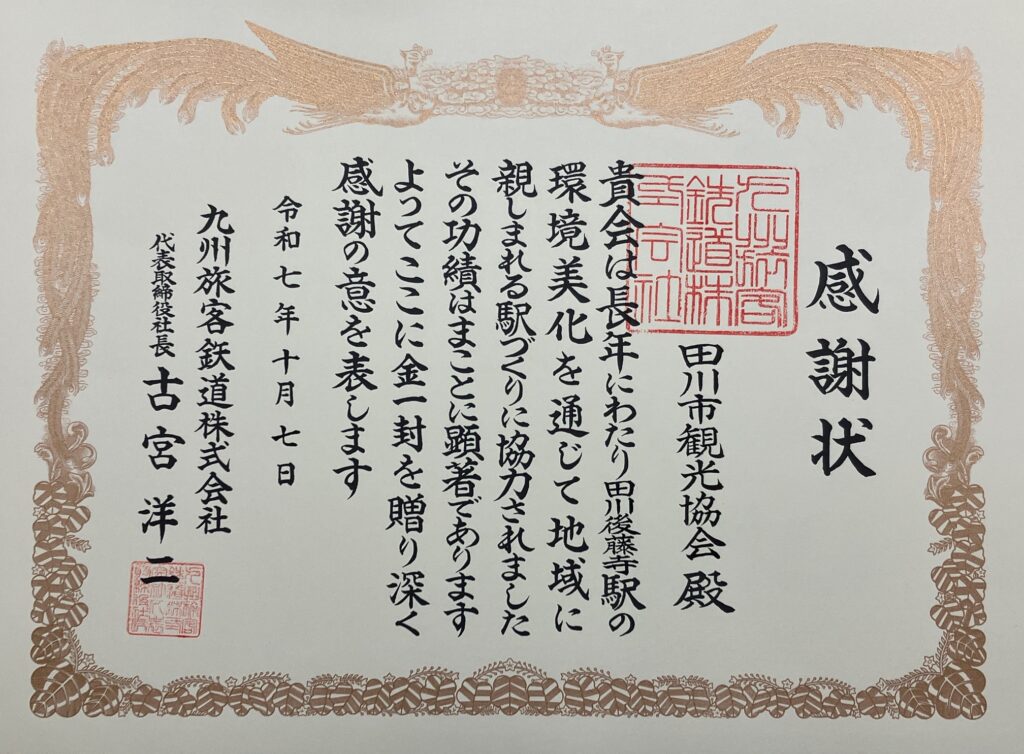 感謝状
田川市観光協会殿
貴会は長年にわたり田川後藤寺駅の
環境美化を通じて地域に
親しまれる駅づくりに協力されました
その功績はまことに顕著であります
よってここに金一封を贈り深く
感謝の意を表します
令和七年十月七日
九州旅客鉄道株式会社
代表取締役社長 古宮洋二
九州旅客
鉄道株
式会社